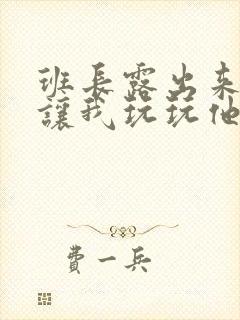 班長露出來
讓我玩玩他
費一兵